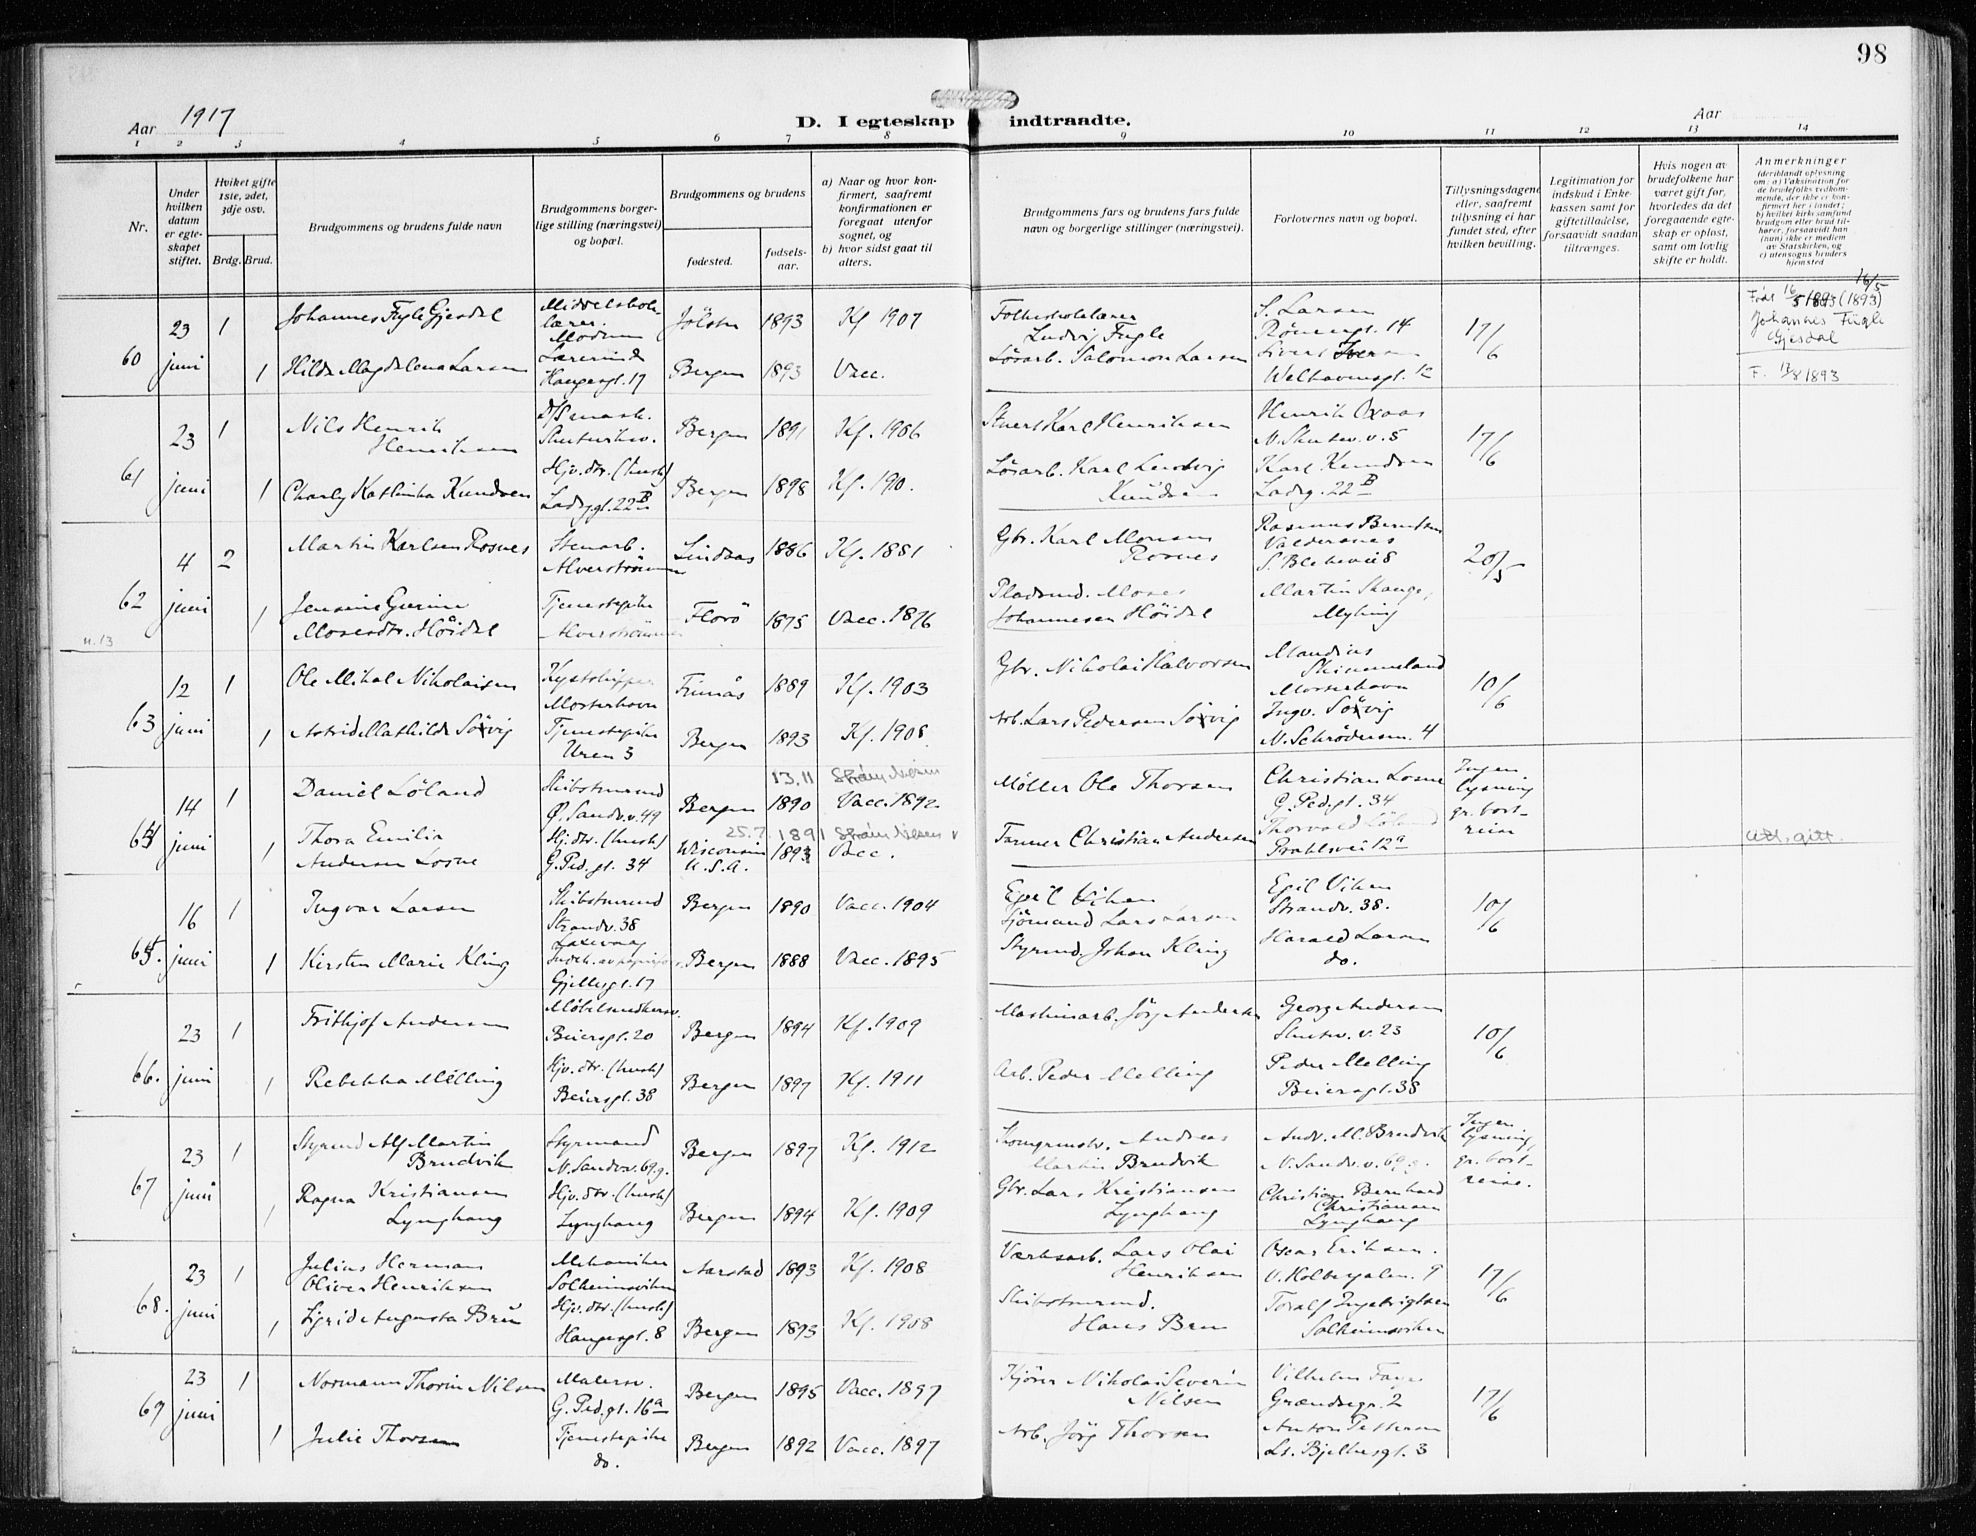 98
Aar 1917
D. I egteskap indtraadte.
Aar
1 2 3 4 5 6 7 8 9 10 11 12 13 14
Nr.
Under hvilken datum er egteskapet stiftet.
Hvilket gifte 1ste, 2det, 3dje osv.
Brdg. Brud.
Brudgommens og brudens fulde navn
Brudgommens borgerlige stilling (næringsvei) og bopæl.
Brudgommens og brudens
fødested.
fødselsaar.
a) Naar og hvor konfirmert, saafremt konfirmationen er foregaat utenfor sognet, og
b) hvor sidst gaat til alters.
Brudgommens fars og brudens fars fulde navn og borgerlige stillinger (næringsvei).
Forlovernes navn og bopæl.
Tillysningsdagene eller, saafremt tillysning ei har fundet sted, efter hvilken bevilling.
Legitimation for indskud i Enkekassen samt for giftetilladelse, forsaavidt saadan tiltrænges.
Hvis nogen av brudefolkene har været gift før, hvorledes da det foregaaende egteskap er opløst, samt om lovlig skifte er holdt.
Anmerkninger
60
23 juni
1
Johannes Fugle Gjesdal
Jölster
1893
Kf 1907
Folkeskolelærer
Ludvig Fugle
S. Larsen
17/6
Johannes Fügle
Gjesdal
1
Hilda Magdalena Larsen
Lærerinde
Haugesgt. 17
Bergen
1893
Vacc.
Lösarb. Salomon Larsen
Welhavensgt.
F. 17/8 1893
61
23 juni
1
Nils Henrik
Henriksen
Bergen
1891
Kf. 1906
Stuert Karl Henriksen
17/6
1
Charly Kathinka Knudsen
Hjv. dtr. (hush)
Ladegt. 22B
Bergen
1898
Kf. 1910.
Lösarb. Karl Ludvig
Knudsen
Karl Knudsen
Ladeg. 22B
62
4 juni
2
Martin Karlsen Rosnes
Stenarb.
Alverströmmen
Lindaas
1886
Kf. 1881
Gbr. Karl Monsen
Rosnes
Rasmus Berntsen
Valdersnes
20/5
n. 13
1
Mosesdtr. Höidal
Tjenestepike
Alverströmmen
Florö
1875
Vacc. 1876
Pladsmd. Moses
Johannesen Höidal
Martin Skauge,
Myking
63
12 juni
1
Ole Mikal Nikolaisen
Kystskipper
Mosterhavn
Finnås
1889
Kf. 1903
Gbr. Nikolai Halvorsen
Mosterhavn
10/6
1
Astrid Mathilde Sövig
Tjenestepike
Uren 3
Bergen
1893
Kf. 1908.
Arb. Lars Pedersen Sövig
Ingv. Sövig
N. Schrödersm. 4
64
14 juni
1
Daniel Löland
Skibstmrmd
Ø. Sandv. v. 49
Bergen
13.11
1890
Vacc. 1892
Möller Ole Thorsen
Christian Losne
G. Ped.gt. 34
Ingen
lysning
gr. bort-
reise
1
Thora Emilia
Andersen Losne
Hj. dtr. (hush)
G. Ped. gt. 34
Wisconsin
U. S. A.
25.7 1891
1893
Vacc.
Farmer Christian Andersen
Thorvald Löland
Prahlsvei 12a
att. gitt.
65.
16 juni
1
Ingvar Larsen
Skibstmrmd
Strandv. 38
Laxevaag
Bergen
1890
Vacc. 1904
Sjömand Lars Larsen
Egil Viken
Strandv. 38.
10/6
1
Kirsten Marie Kling
Gjellesgt. 17
Bergen
1888
Vacc. 1895
Styrmd. Johan Kling
Harald Larsen
do.
66.
23 juni
1
Frithjof Andersen
Möbelsnedkersv.
Beiersgt. 20
Bergen
1894
Kf. 1909
Maskinarb. Jörg Andersen
Georg Andersen
Skutev. v. 23
10/6
1
Rebekka Melling
Hjv. dtr. (hush)
Beiersgt. 38
Bergen
1897
Kf. 1911
Arb. Peder Melling
Peder Melling
Beiersgt. 38
67
23 juni
1
Styrmd Alf Martin
Brudvik
Styrmand
N. Sandv. v. 69g.
Bergen
1897
Kf. 1912
Andreas
Martin Brudvik
Andr. M. Brudvik
N. Sandv. v. 69g.
Ingen
lysning,
gr. bort-
reise.
1
Ragna Kristiansen
Lynghaug
Hjv. dtr. (hush)
Lynghaug
Bergen
1894
Kf. 1909
Gbr. Lars Kristiansen
Lynghaug
Christian Bernhard
Christiansen
Lynghaug
68.
23 juni
1
Julius Herman
Oliver Henriksen
Mekaniker
Solheimsviken
Aarstad
1893
Kf. 1908
Værksarb. Lars Olai
Henriksen
Oscar Eriksen.
v. Holbergalm. 9
17/6
1
Sigrid Augusta Brun
Hjv. dtr. (hush)
Haugesgt. 8
Bergen
1893
Kf. 1908
Skibstmrmd.
Hans Brun
Toralf Ingebrigtsen
Solheimsviken
69
23 juni
1
Normann Thorin Nilsen
Malersv.
G. Ped. gt. 16a
Bergen
1895
Vacc. 1897
Kjörer Nikolai Severin
Nilsen
Vilhelm
17/6
1
Julie Thorsen
Tjenestepike
do.
Bergen
1892
Vacc. 1897
Arb. Jörg Thorsen
Anton Pettersen
Ls. Bjelkesgt. 3